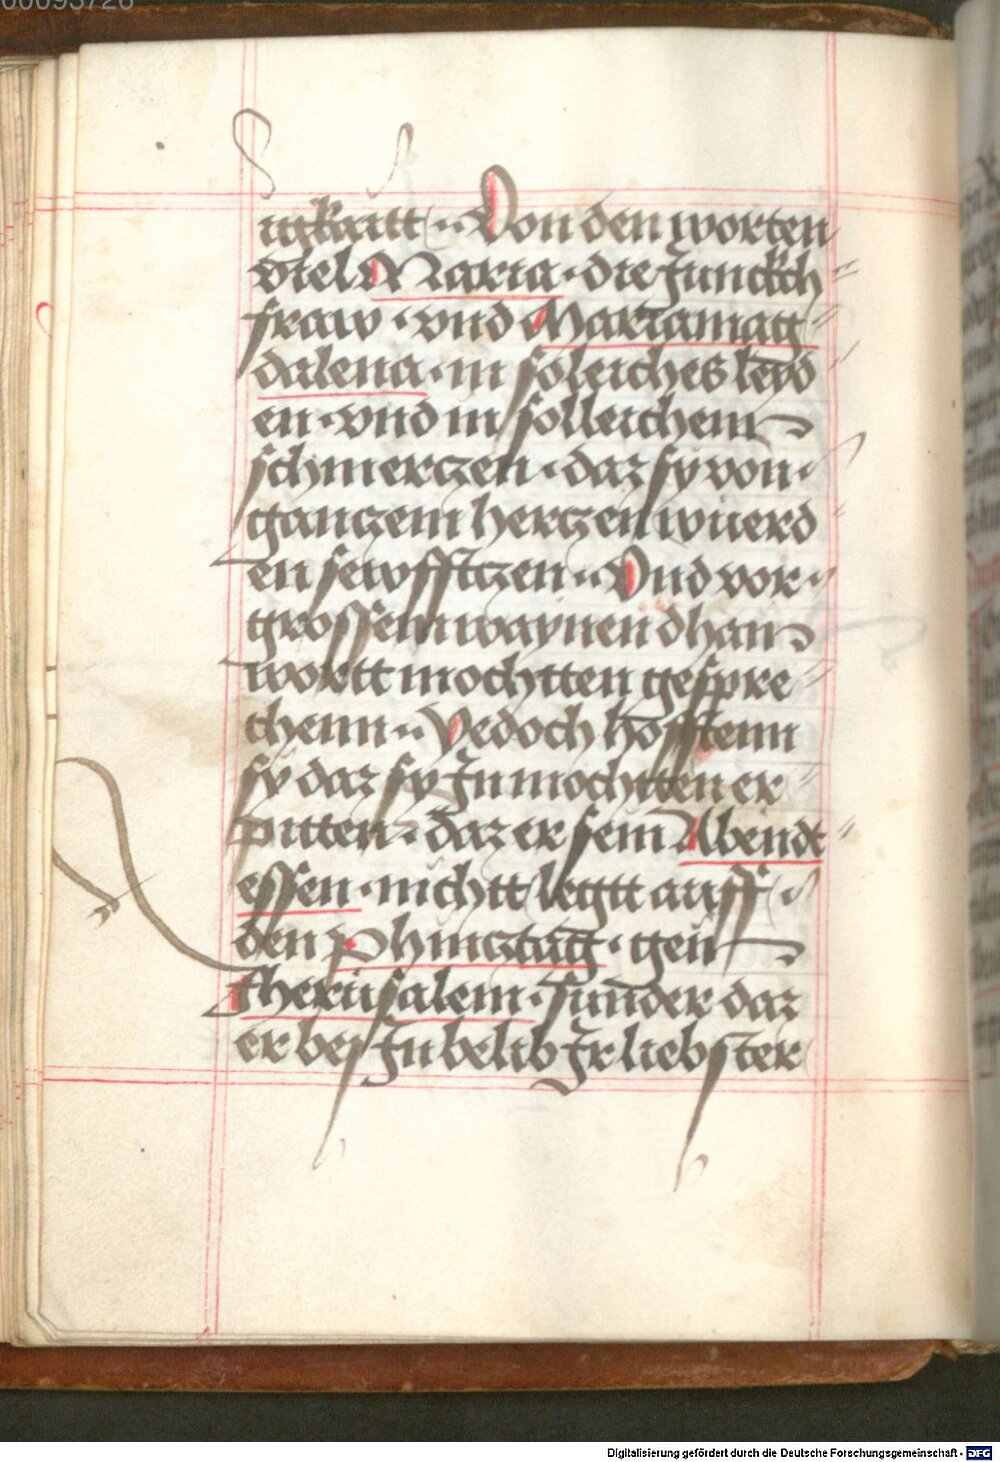 igkaitt ·:· Von den worten
viel Maria · die Junckch
fraw · vnd Mariamag
dalena · in soleiches leyd
en · vnd in solleichem
schmerczen · daz sy von ·
ganczem herczen wuerd
en sewfftczen ·:· Vnd vor ·
grossem waynnen dhain
wortt mochtten gespre
chenn ·:· Yedoch hofftenn
sy daz sy Jn mochtten er
pitten · daz er sein Abendt
essen · nichtt legtt auff ·
den Phincztag · gein
Jherusalem · Sunder daz
er bey Jn belib Jr liebster
Digitalisierung gefördert durch die Deutsche Forschungsgemeinschaft - DFG